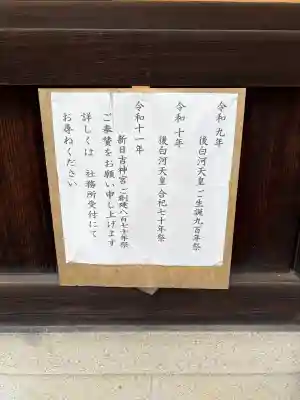 令和九年
後白河天皇ご生誕九百年祭
令和十年
後白河天皇合祀七十年祭
令和十一年
新日吉神宮ご創建八百七十年祭
ご奉賛をお願い申し上げます
詳しくは 社務所受付にて
お尋ねください